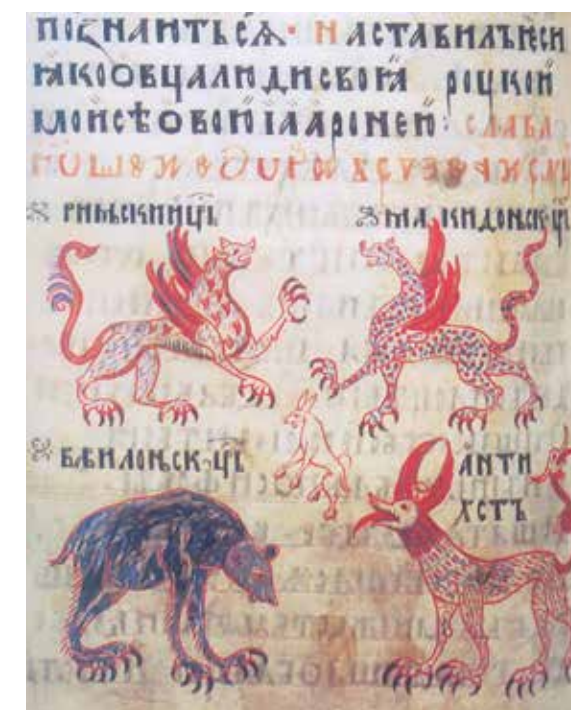 познаитьсѧ · наставилъѥси
ꙗкоовцалюдисвоꙗ роукои
моисѣовои іаронеи : слава
римьскииц҃ь
макидоньск·ц҃ь
вавилоньск·ц҃ь
анти
хстъ